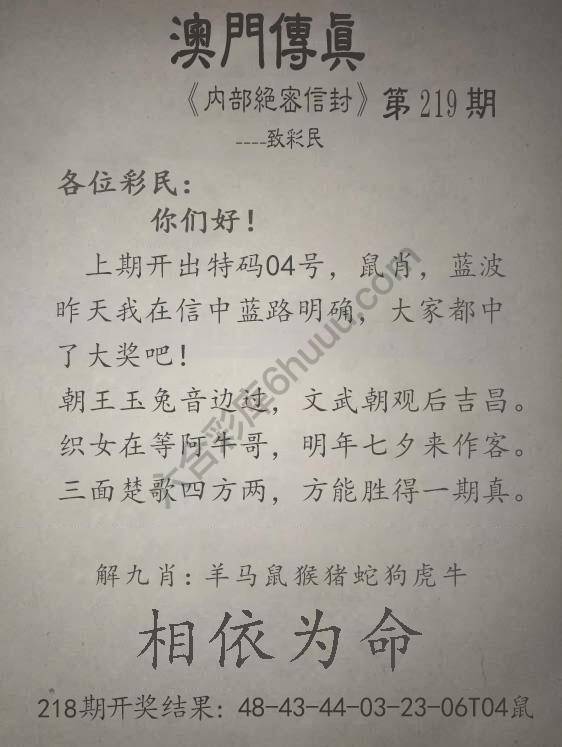 澳門傳真
《内部絕密信封》第219期
----致彩民
各位彩民：
你们好！
上期开出特码04号，鼠肖，蓝波
昨天我在信中蓝路明确，大家都中
了大奖吧！
朝王玉兔音边过，文武朝观后吉昌。
织女在等阿牛哥，明年七夕来作客。
三面楚歌四方两，方能胜得一期真。
解九肖：羊马鼠猴猪蛇狗虎牛
相依为命
218期开奖结果：48-43-44-03-23-06T04鼠
六合彩库6huuu.com